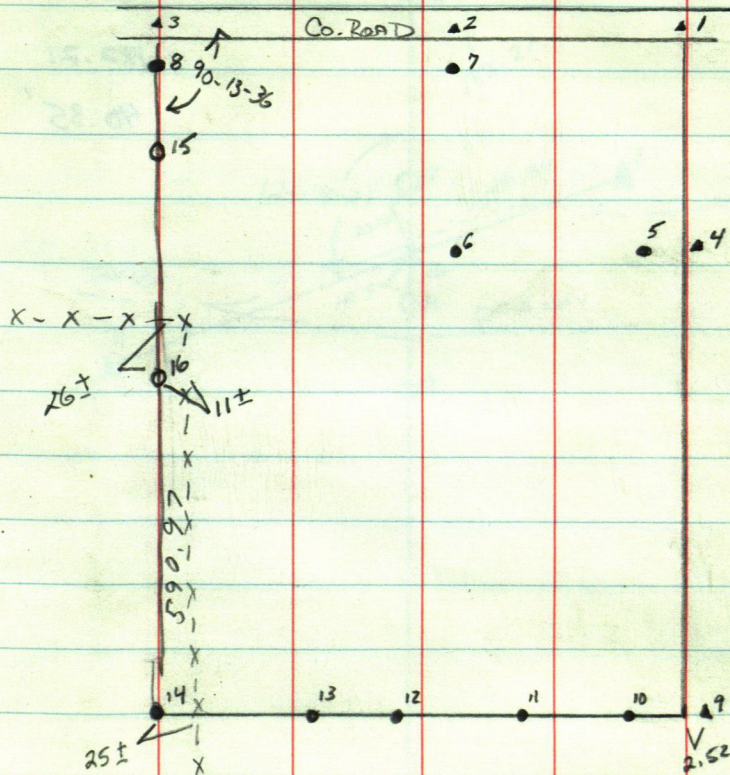 ▲3 Co. ROAD ▲2 ▲1
8 7
90-13-36
15
6 5 ▲4
x - x - x - x
16
26± 11±
14 13 12 11 10 ▲9
25± 2.52